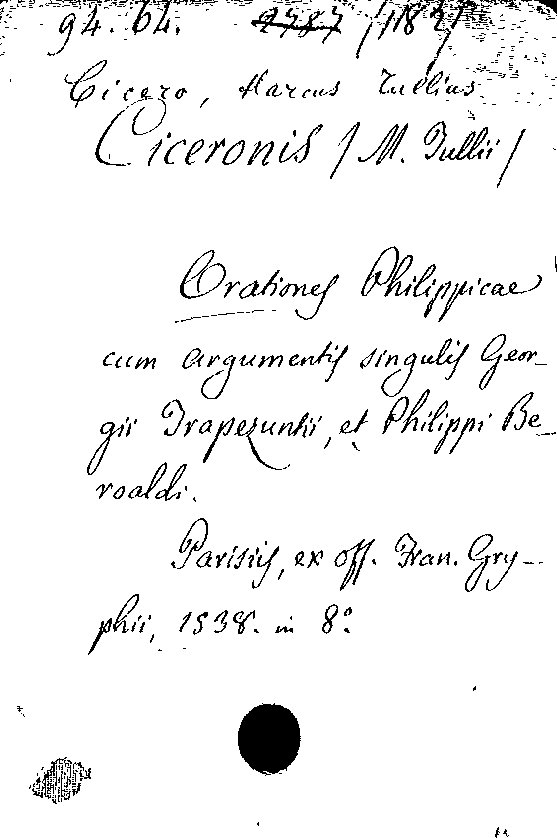 94. 64. 2787 /1182/
Cicero, Marcus Tullius
Ciceronis / M. Tullii /
Orationes Philippicae
cum argumentis singulis Geor-
gii Trapezuntii, et Philippi Be-
roaldi.
Parisiis, ex off. Fran. Gry-
phii, 1538. in 8°.